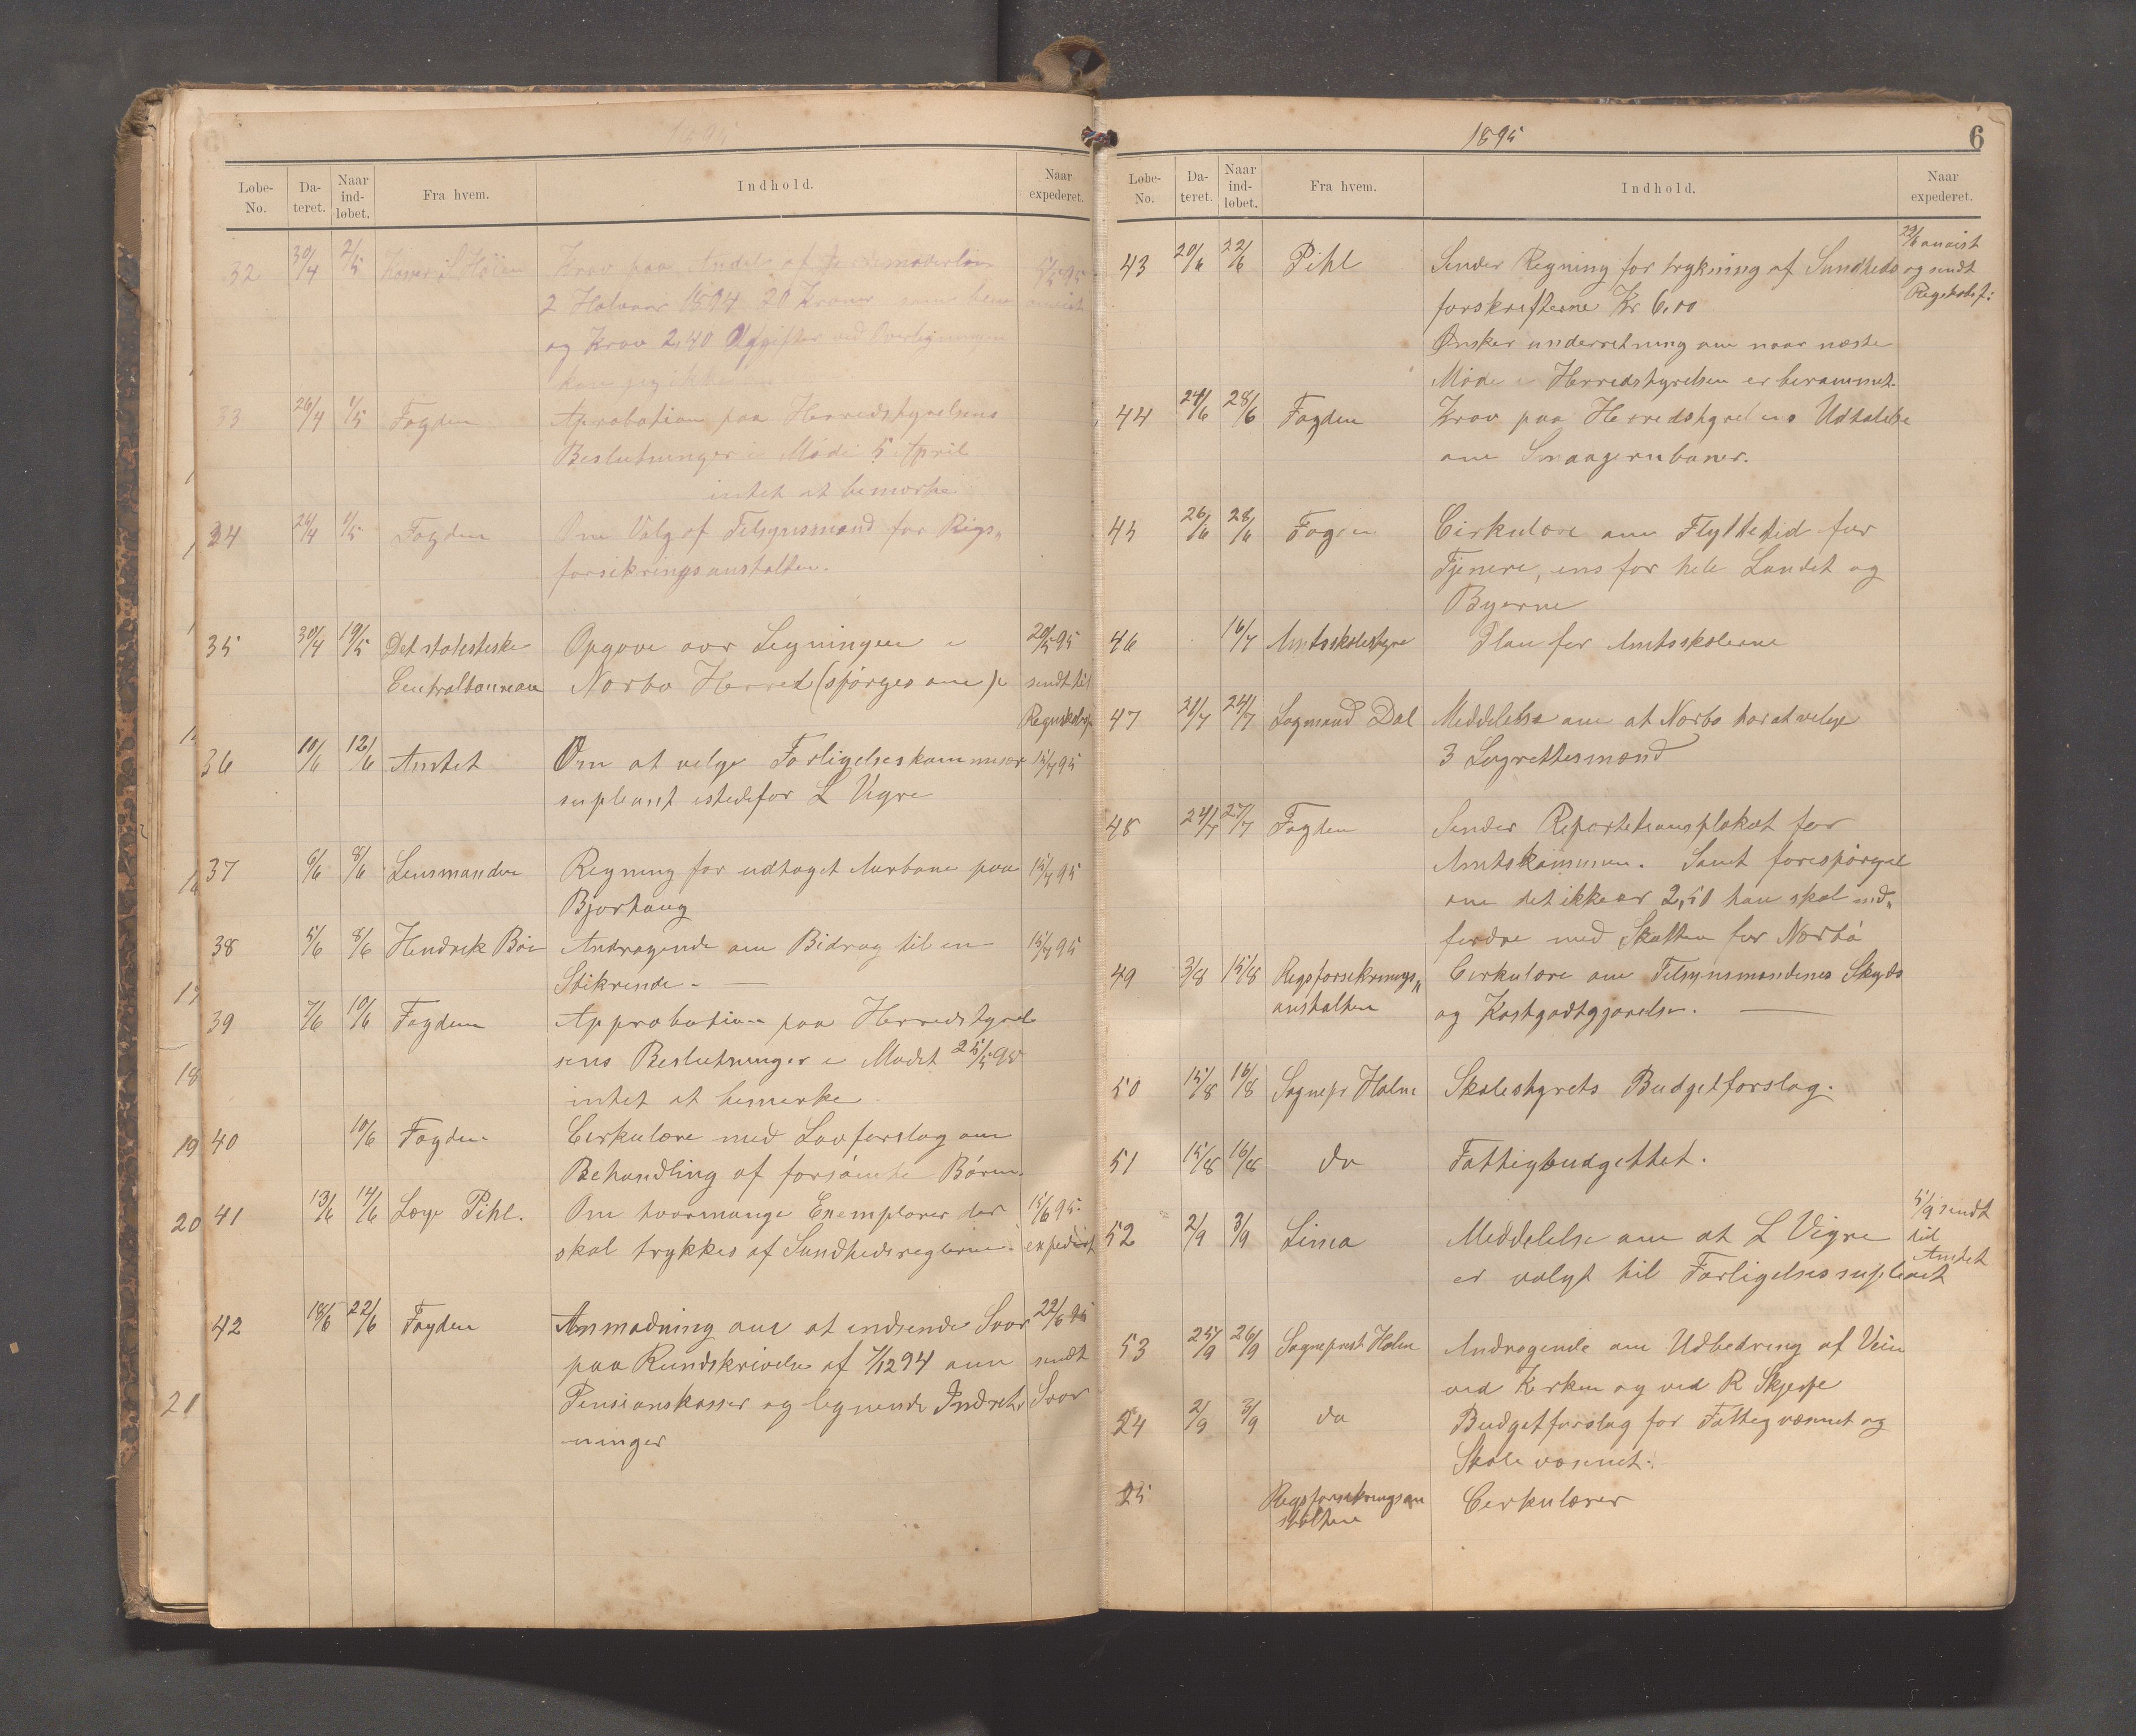 1895
Løbe-No. Dateret. Naar indløbet. Fra hvem. Indhold. Naar expederet.
32 30/4 2/5 Krav paa Andel af Jordemoderløn 5/5 95
2 Halvaar 1894 20 Kroner som anvist
og Krav 2,40 Udgifter ved Overligningen
kan jeg ikke
33 26/4 1/5 Fogden Aprobation paa Herredstyrelsens
Beslutninger i Møde 5 April
intet at bemærke
34 26/4 1/5 Fogden Om Valg af Tilsynsmænd for Rigs„
forsikringsanstalten.
35 30/4 19/5 Det statistiske Opgave over Ligningen i 20/5 95
Centralbaureau Nærbø Herred (spørges om) sendt til
Regnskabsf
36 10/6 12/6 Amtet Om at velge Forligelseskommisær 15/7 95
supleant istedefor L Vigre
37 6/6 8/6 Lensmanden Regning for udtaget Aurbane paa 15/7 95
Bjorhaug
38 5/6 8/6 Hendrik Bøe Andragende om Bidrag til en 15/7 95
Stikrende. —
39 7/6 10/6 Fogden Approbation paa Herredstyrel
sens Beslutninger i Mødet 25/5 95
intet at bemerke.
40 10/6 Fogden Cirkulære med Lovforslag om
Behandling af forsømte Børn.
41 13/6 14/6 Læge Pihl. Om hvormange Exemplarer der 15/6 95.
skal trykkes af Sundhedsreglerne. expedert
42 18/6 22/6 Fogden Anmodning om at indsende Svar 22/6 95
paa Rundskrivelse af 7/12 94 om sendt
Pensionskasser og lignende Indret„ Svar
ninger
17
18
19
20
21
1895
6
Løbe-No. Dateret. Naar indløbet. Fra hvem. Indhold. Naar expederet.
43 20/6 22/6 Pihl Sender Regning for trykning af Sundheds 22/6 anvist
og sendt
forskrifterne Kr 6,00 Regskabsf:
Ønsker underretning om naar næste
Møde i Herredstyrelsen er berammet.
44 24/6 28/6 Fogden Krav paa Herredstyrelsens Udtalelse
om Smaajernbaner.
45 26/6 28/6 Fogden Cirkulære om Flyttetid for
Tjenere, ens for hele Landet og
Byerne
46 16/7 Amtsskolestyre Plan for Amtsskolerne
47 21/7 24/7 Lagmand Dal Meddelelse om at Nærbø har at velge
3 Lagrettesmænd
48 24/7 27/7 Fogden Sender Repartitionsplakat for
Amtskommunen. Samt forespørgsel
om det ikke er 2,50 han skal ind„
fordre med Skatten for Nærbø
49 3/8 15/8 Rigsforsikrings„ Cirkulære om Tilsynsmændenes Skyds
anstalten og Kostgodtgjørelse. —
50 15/8 16/8 Sognepr Holm Skolestyrets Budgetforslag.
51 15/8 16/8 do Fattigbudgettet.
52 2/9 3/9 Lima Meddelelse om at L Vigre 5/9 sendt
til
Amtet
er valgt til Forligelsessupleant
53 25/9 26/9 Sogneprest Holm Andragende om Udbedring af Veien
ved Kirken og ved R Skjerpe
54 2/9 3/9 do Budgetforslag for Fattigvæsnet og
Skolevæsenet.
55 Rigsforsikringsan Cirkulærer
stalten